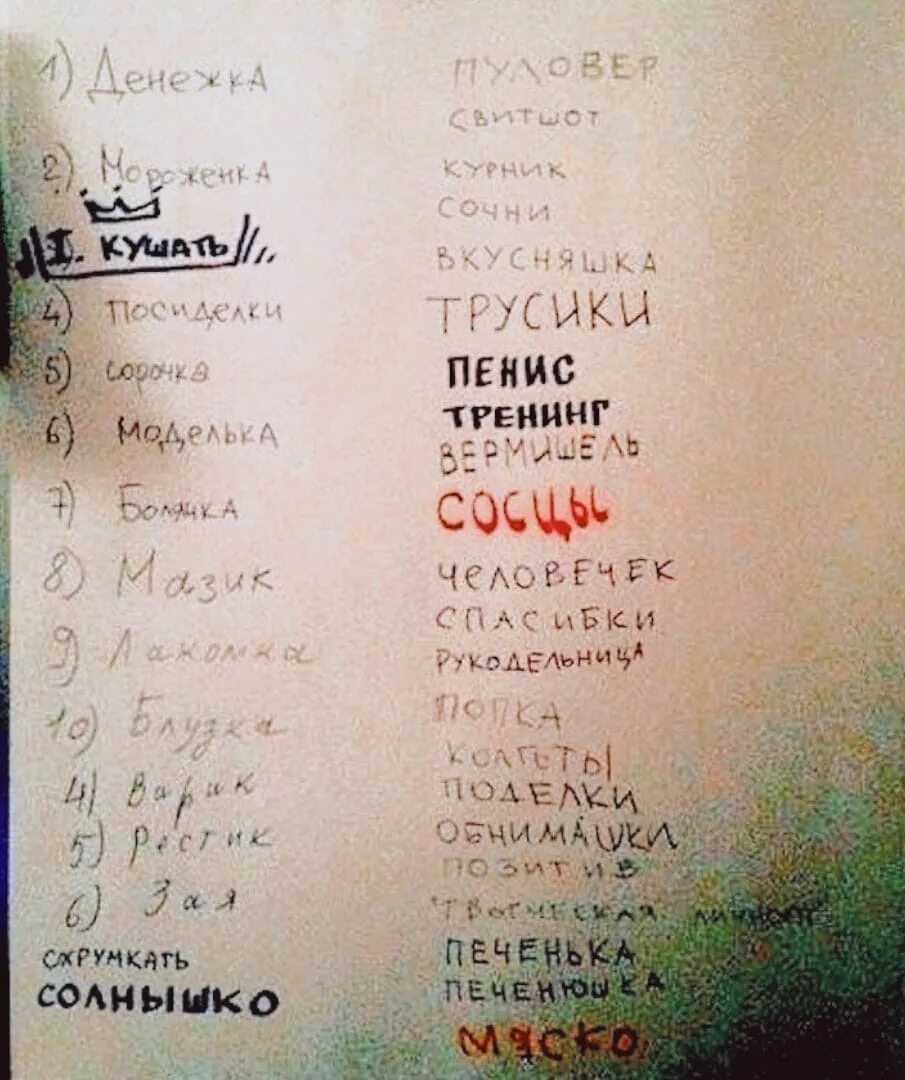 1) Денежка
2) Мороженка
I. кушать
4) Посиделки
5) сорочка
6) Моделька
7) Болячка
8) Мазик
9) Лакомка
10) Блузка
4) Варик
5) Ростик
6) Зая
схрумкать
солнышко
ПУЛОВЕР
СВИТШОТ
КУРНИК
СОЧНИ
ВКУСНЯШКА
ТРУСИКИ
ПЕНИС
ТРЕНИНГ
ВЕРМИШЕЛЬ
СОСЦЫ
ЧЕЛОВЕЧЕК
СПАСИБКИ
РУКОДЕЛЬНИЦА
ПОПКА
КОЛГОТЫ
ПОДЕЛКИ
ОБНИМАШКИ
ПОЗИТИВ
ТВОРЧЕСКАЯ ЛИЧНОСТЬ
ПЕЧЕНЬКА
ПЕЧЕНЮШКА
МЯСКО